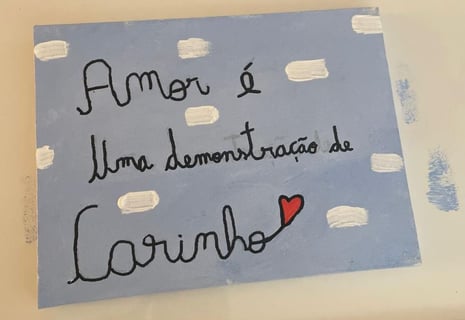 Amor é
Uma demonstração de
Carinho